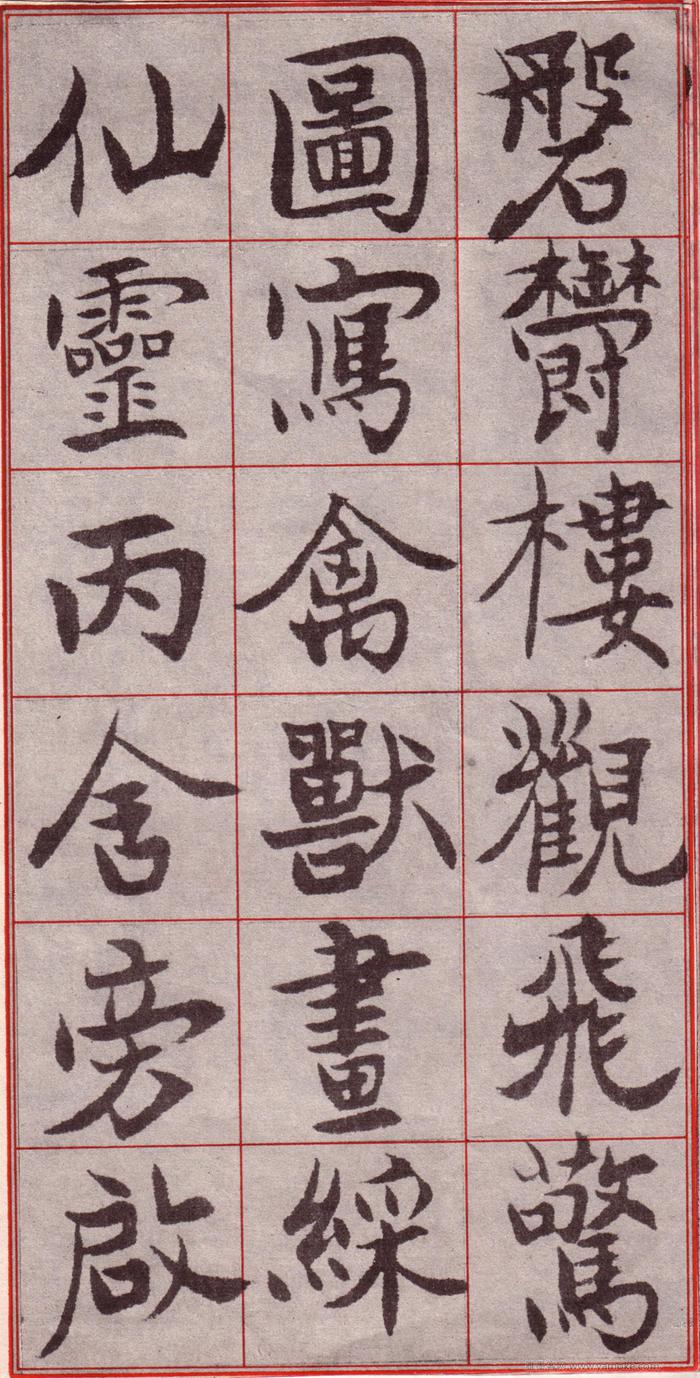 磐欝樓觀飛驚
圖寫禽獸畫綵
仙靈丙舍旁啟